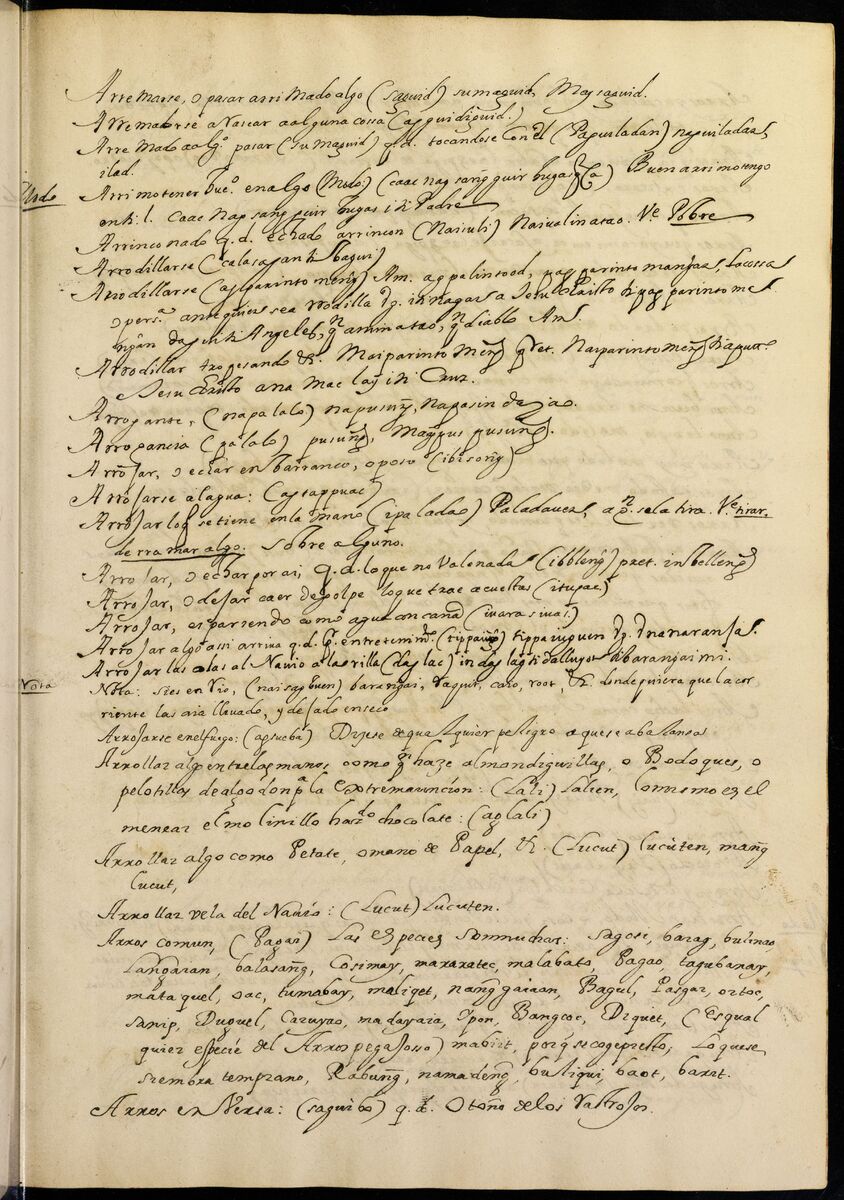 Arremarse, o pasar arrimado algo (saguid) sumaguid, Mag saguid.
Arremarse a Nascar a alguna cossa (ag guidiguid.)
Arre mado a algº. pasar (sumaguid) q. d. tocandose con el (Paguiladan) naguiladan,
ilad.
Modo
Arrimo tener Bueº. en algo (Modo) (caac nag sang guir bugas) Buen arrimo tengo
caac nag sang guir bugas iti Padre
Arrinconado q. d. echado arrincon (Naisuli) Naisuli natao. Ve. Pobre
Arrodillarse
Arrodillarse (ag parintomeng) Am. ag palintood, pag parintomangan, la cossa
o persª. ante quien sea rodilla Vg. a Jesu Christo ti pag parintome
ngan dagiti Angeles, amin a tao, diablo Am
Arrodillar tropesando &. Maiparintomeng pret. Naiparintomeng
Jesu Christo ana mac lag iti Cruz.
Arrogante, (napalalo) napusung, Nagasin
Arrogancia (palalo) pusung,
Arrojar, o echar en barranco, o poso (ibisong)
Arrojarse al agua: (ag tappuac)
Arrojar loq se tiene en la mano (ipalladao) Palladauen, a qn. se la tira. Ve. tirar.
derramar algo. sobre alguno.
Arrojar, o echar por ai, q. d. lo que no vale nada (ibbleng) pret. inbelleng
Arrojar, o dejar caer de golpe lo que trae a cuestas (itupac)
Arrojar, esparsendo como agua con caña (iuarasiuas)
Arrojar algo assi arriva q. d. Pr. entretenimtº. (tippaung) tippaunguen Vg. Vna naranja.
Arrojar las olas al Navio a la orilla (dag lac)
Nota
Nota: si es en rio, (naisagbuen) barangai, raquit, caio, root, &. donde quiera que la cor
riente las aia llevado, y dejado en seco
Arrojarse en el fuego: (agsueba) Dijese de qualquier peligro a que se abalansa
Arrollar algo entre las manos como qn. haze almondiguillas, o Bodoques, o
pelotillas de algodon pª. la Extremauncion: (Lali) Lalien, lo mismo es el
menear el molinillo hazdº chocolate: (ag lali)
Arrollar algo como Petate, o mano de Papel, &. (Lucut) lucuten, mang
lucut,
Arrollar vela del Navio: (Lucut) Lucuten.
Arros comun, (Pagai) Las especies son muchas: sagosi, barag, bulinao
Langaran, balasang, Cosimay, maxaratec, malabato Pagao, tagubanay,
mataquel, oac, tumabay, maliqet, nang gaiaan, Bagul, Pasgar, ortoc,
sanip, Duquel, Caruyao, madayaia, Ypon, Bangcoc, Diquet, (Es qual
quier especie del Arros pegajosso) mabirt, porq se coge presto, Lo que se
siembra temprano, Rabung, namadeng, buliqui, baot, barit.
Arros en Versa: (saguibo) q. d. Otoño de los Rastrojos.